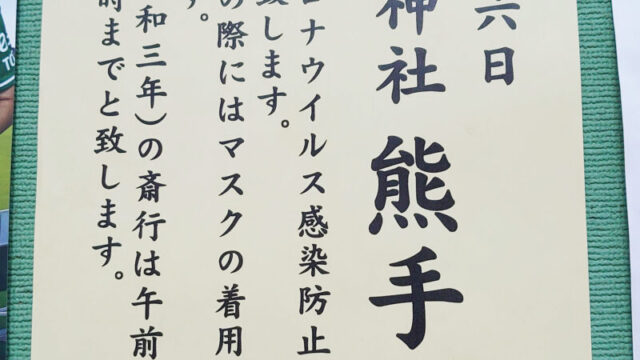 六日
神社 熊手
ロナウイルス感染防止
致します。
の際にはマスクの着用
す。
和三年)の斎行は午前
時までと致します。